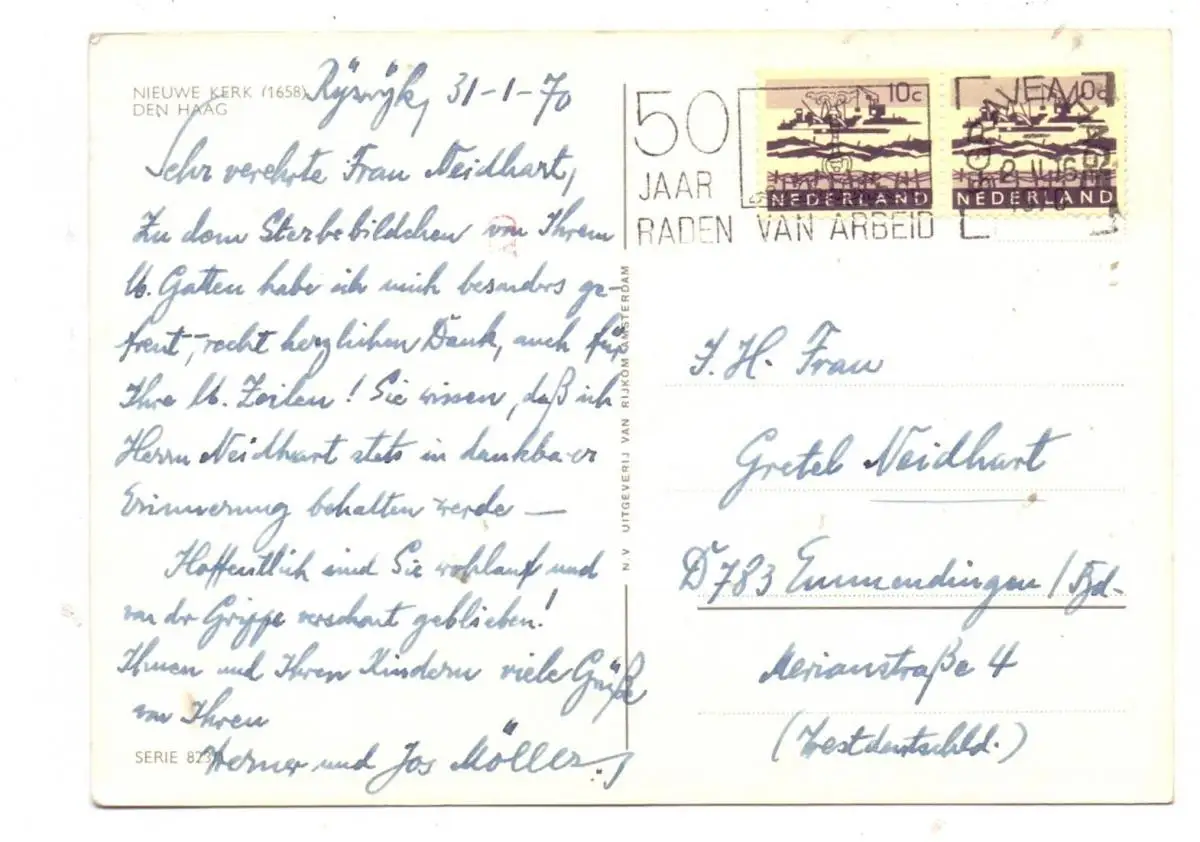 NIEUWE KERK (1658)
DEN HAAG
Rÿswÿk, 31-1-70
Sehr verehrte Frau Neidhart,
Zu dem Sterbebildchen von Ihrem
lb. Gatten habe ich mich besonders ge-
freut, – recht herzlichen Dank, auch für
Ihre lb. Zeilen! Sie wissen, daß ich
Herrn Neidhart stets in dankbarer
Erinnerung behalten werde —
Hoffentlich sind Sie wohlauf und
von dr Grippe verschont geblieben!
Ihnen und Ihren Kindern viele Grüße
von Ihren
Werner und Jos Möller
SERIE 823
N.V. UITGEVERIJ VAN RIJKOM AMSTERDAM
50
JAAR
RADEN VAN ARBEID
10c
NEDERLAND
10c
NEDERLAND
'S-GRAVENHAGE
2.II.
1970
I. H. Frau
Gretel Neidhart
D 783 Emmendingen /
Merianstraße 4
(Westdeutschld.)